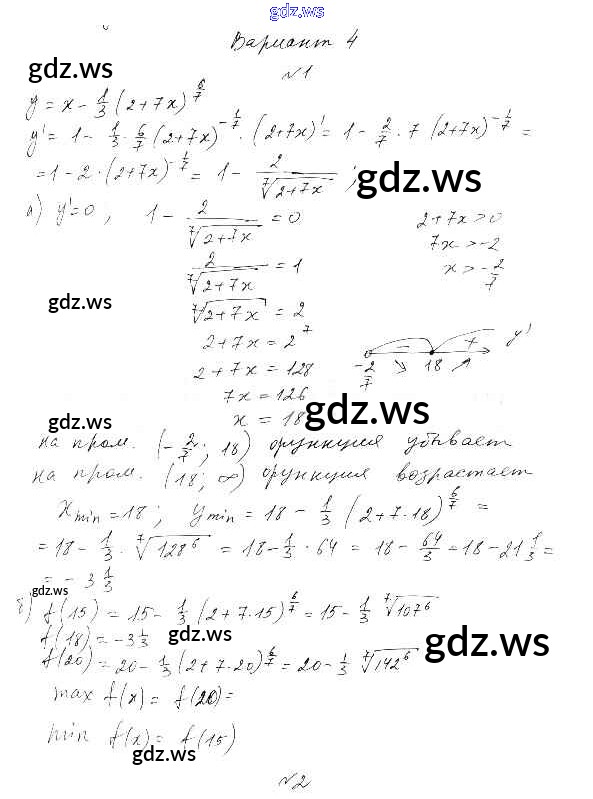 gdz.ws
Вариант 4
gdz.ws
№1
y = x - 1/3 (2+7x)^(6/7)
y' = 1 - 1/3 · 6/7 (2+7x)^(-1/7) · (2+7x)' = 1 - 2/7 · 7 (2+7x)^(-1/7) =
= 1 - 2 · (2+7x)^(-1/7) = 1 - 2/⁷√(2+7x) ;
gdz.ws
а) y'=0 , 1 - 2/⁷√(2+7x) = 0 2+7x>0
2/⁷√(2+7x) = 1 7x>-2
gdz.ws
x>-2/7
⁷√(2+7x) = 2
2+7x = 2⁷
- + y'
2+7x = 128 -2/7 ↘ 18 ↗
7x = 126
x = 18
gdz.ws
gdz.ws
на пром. (-2/7; 18) функция убывает
на пром. (18; ∞) функция возрастает
x min = 18; y min = 18 - 1/3 (2+7·18)^(6/7) =
= 18 - 1/3 · ⁷√128⁶ = 18 - 1/3 · 64 = 18 - 64/3 = 18 - 21 1/3 =
= - 3 1/3
gdz.ws
б) f(15) = 15 - 1/3 (2+7·15)^(6/7) = 15 - 1/3 ⁷√107⁶
f(18) = -3 1/3
gdz.ws
gdz.ws
f(20) = 20 - 1/3 (2+7·20)^(6/7) = 20 - 1/3 ⁷√142⁶
max f(x) = f(20) =
min f(x) = f(15)
gdz.ws
№2